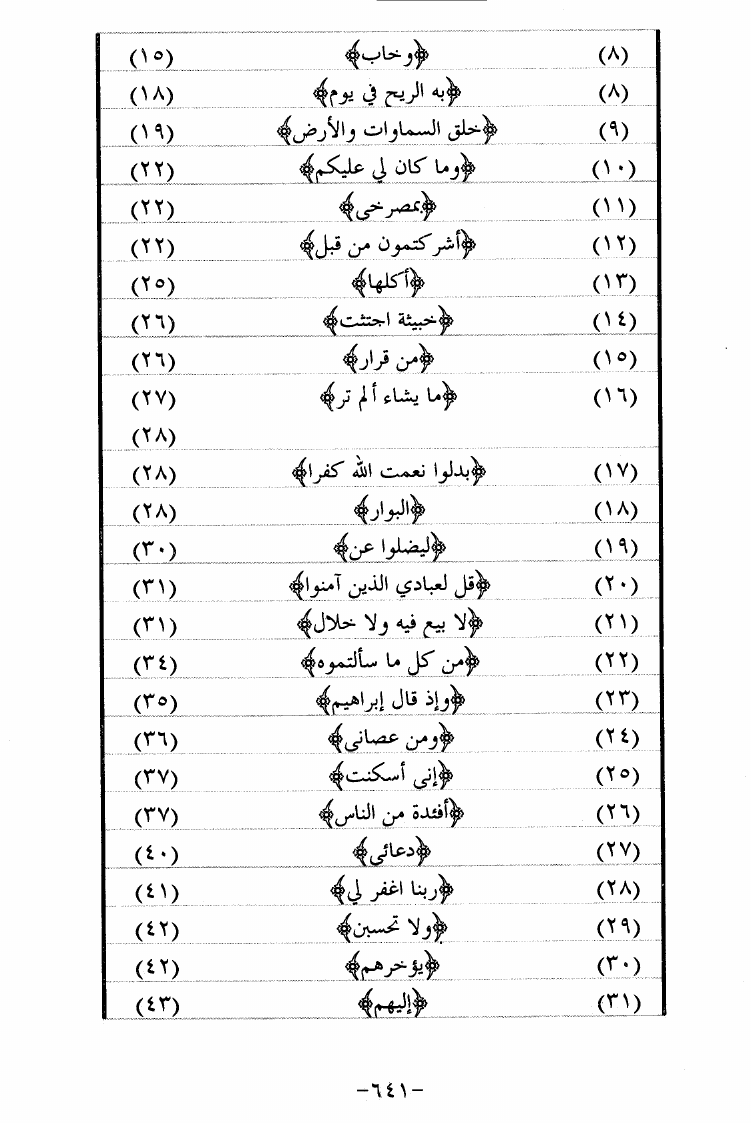 (٨) ﴿وخاب﴾ (١٥)
(٨) ﴿به الريح في يوم﴾ (١٨)
(٩) ﴿خلق السماوات والأرض﴾ (١٩)
(١٠) ﴿وما كان لي عليكم﴾ (٢٢)
(١١) ﴿بمصرخى﴾ (٢٢)
(١٢) ﴿أشركتمون من قبل﴾ (٢٢)
(١٣) ﴿أكلها﴾ (٢٥)
(١٤) ﴿خبيثة اجتثت﴾ (٢٦)
(١٥) ﴿من قرار﴾ (٢٦)
(١٦) ﴿ما يشاء ألم تر﴾ (٢٧)
(٢٨)
(١٧) ﴿بدلوا نعمت الله كفرا﴾ (٢٨)
(١٨) ﴿البوار﴾ (٢٨)
(١٩) ﴿ليضلوا عن﴾ (٣٠)
(٢٠) ﴿قل لعبادي الذين آمنوا﴾ (٣١)
(٢١) ﴿لا بيع فيه ولا خلال﴾ (٣١)
(٢٢) ﴿من كل ما سألتموه﴾ (٣٤)
(٢٣) ﴿وإذ قال إبراهيم﴾ (٣٥)
(٢٤) ﴿ومن عصانى﴾ (٣٦)
(٢٥) ﴿إنى أسكنت﴾ (٣٧)
(٢٦) ﴿أفئدة من الناس﴾ (٣٧)
(٢٧) ﴿دعائى﴾ (٤٠)
(٢٨) ﴿ربنا اغفر لي﴾ (٤١)
(٢٩) ﴿ولا تحسبن﴾ (٤٢)
(٣٠) ﴿يؤخرهم﴾ (٤٢)
(٣١) ﴿إليهم﴾ (٤٣)
-٦٤١-